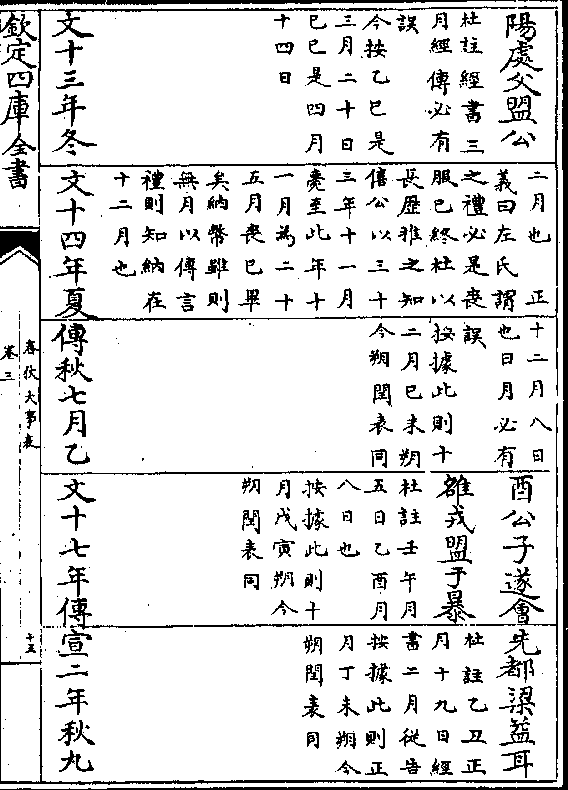 陽處父盟公
杜註經書三
月經傳必有
誤
今按乙巳是
三月二十日
己巳是四月
十四日
文十三年冬
二月也　正
義曰左氏謂
之禮必是喪
服已終杜以
長歷推之知
僖公以三十
三年十一月
薨至此年十
一月為二十
五月喪已畢
矣納幣雖則
無月以傳言
禮則知納在
十二月也
文十四年夏
十二月八日
也日月必有
誤
按據此則十
二月己未朔
今朔閏表同
傳秋七月乙
酉公子遂會
雒戎盟于暴
杜註壬午月
五日乙酉月
八日也
按據此則十
月戊寅朔今
朔閏表同
文十七年傳
先都梁益耳
杜註乙丑正
月十九日經
書二月從告
按據此則正
月丁未朔今
朔閏表同
宣二年秋九
欽定四庫全書
春秋大事表
卷三
十五